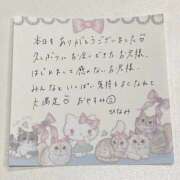 本日もありがとうございました♡
久しぶりにお逢いできたお客様、
はじめましての感のないお客様、
みんないっぱい気持ちよくなれて
大満足♡ おやすみ
ひなみ